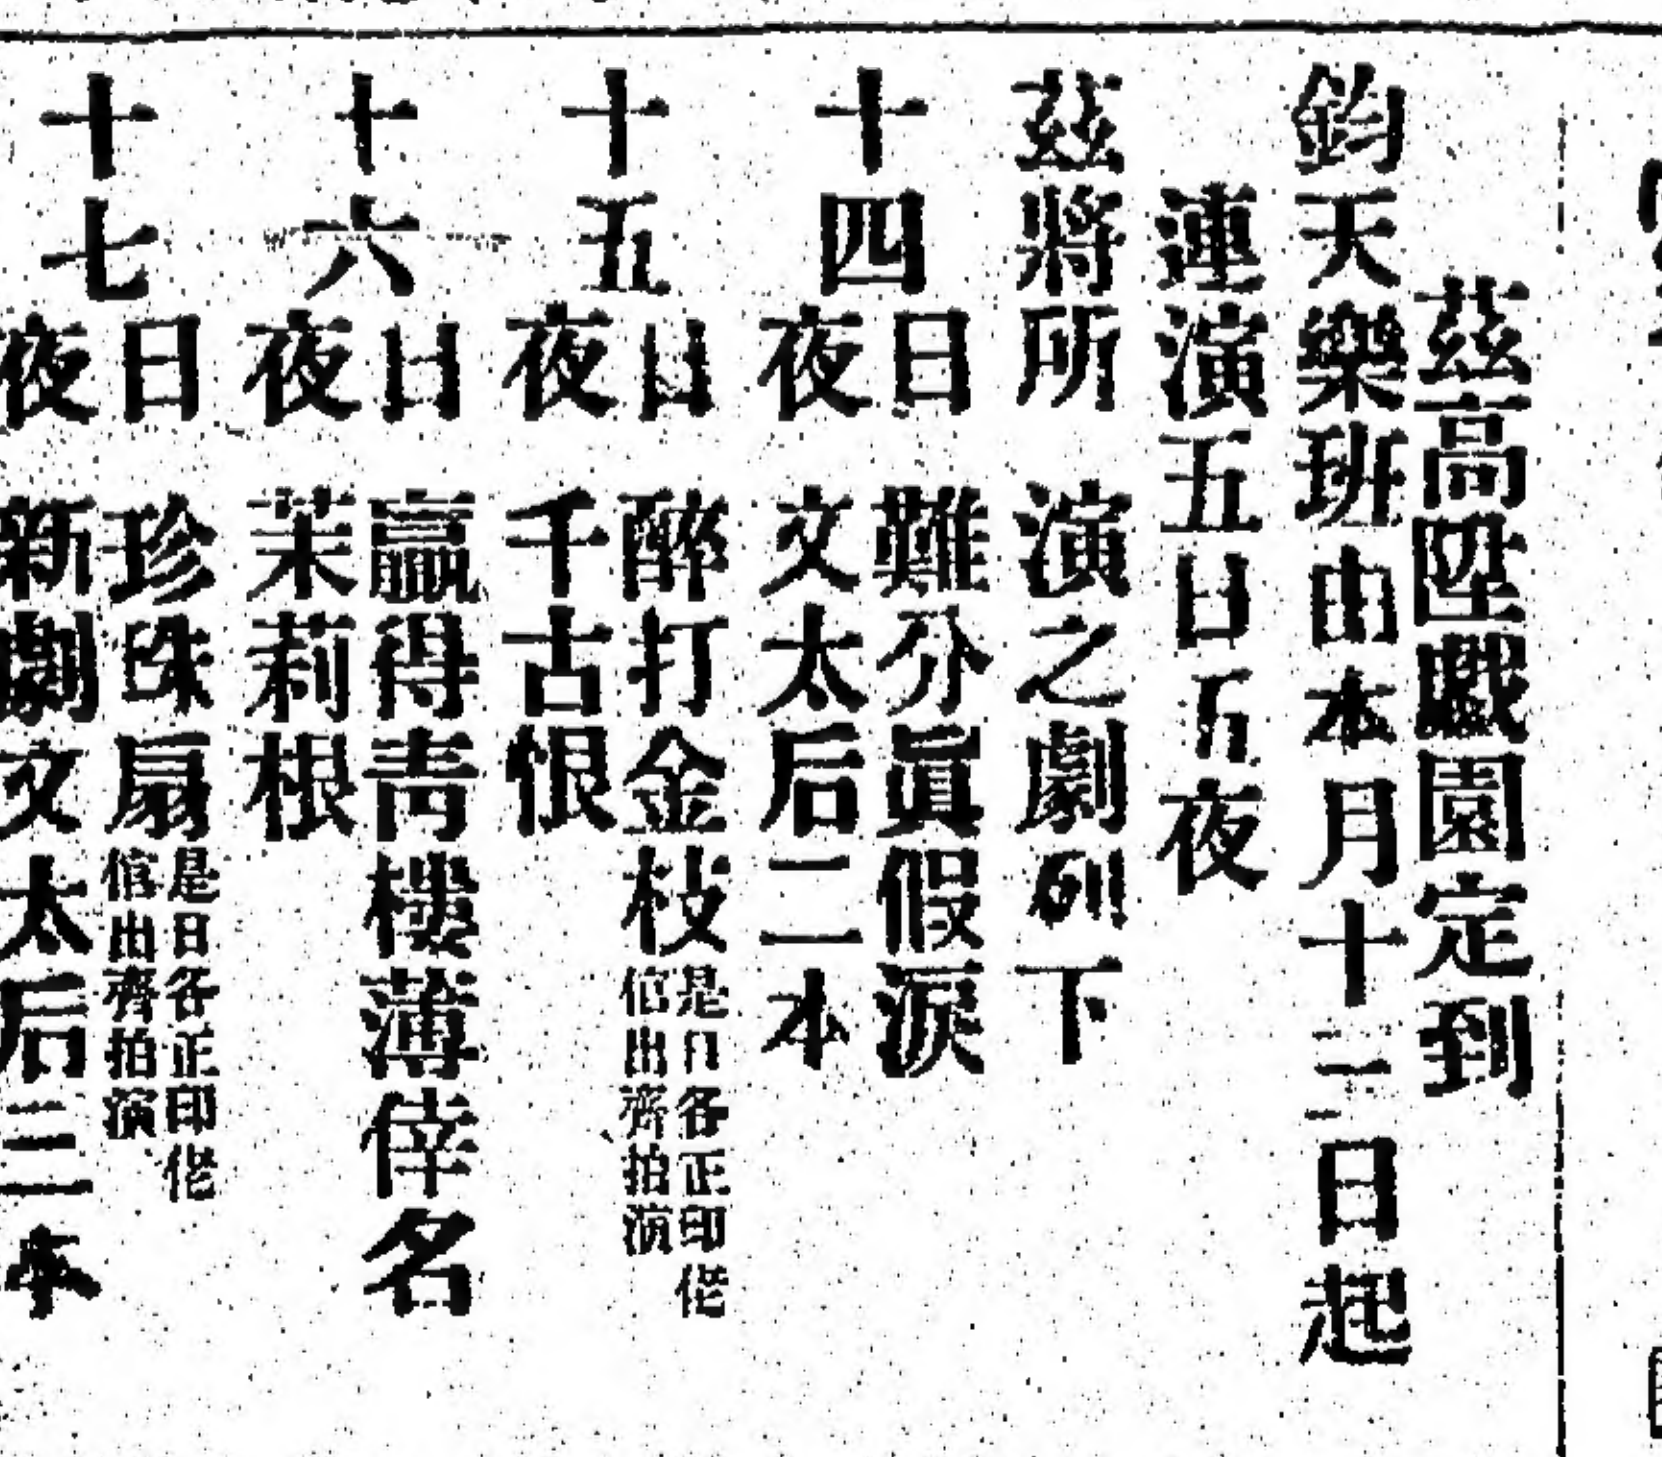 茲高陞戲園定到
鈞天樂班由本月十三日起
連演五日五夜
茲將所演之劇列下
十四
日 難分眞假淚
夜 文太后二本
十五
日 醉打金枝 是日各正印佬倌出齊拍演
夜 千古恨
十六
日 贏得青樓薄倖名
夜 茉莉根
十七
日 珍珠扇 是日各正印佬倌出齊拍演
夜 新劇文太后三本